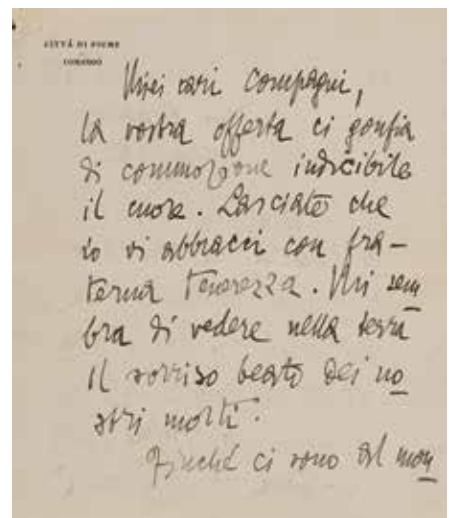 CITTÀ DI FIUME
COMANDO
Miei cari Compagni,
la vostra offerta ci gonfia
di commozione indicibile
il cuore. Lasciate che
io vi abbracci con fra-
terna tenerezza. Mi sem
bra di vedere nella terra
il sorriso beato dei no
stri morti.
Finché ci sono al mon